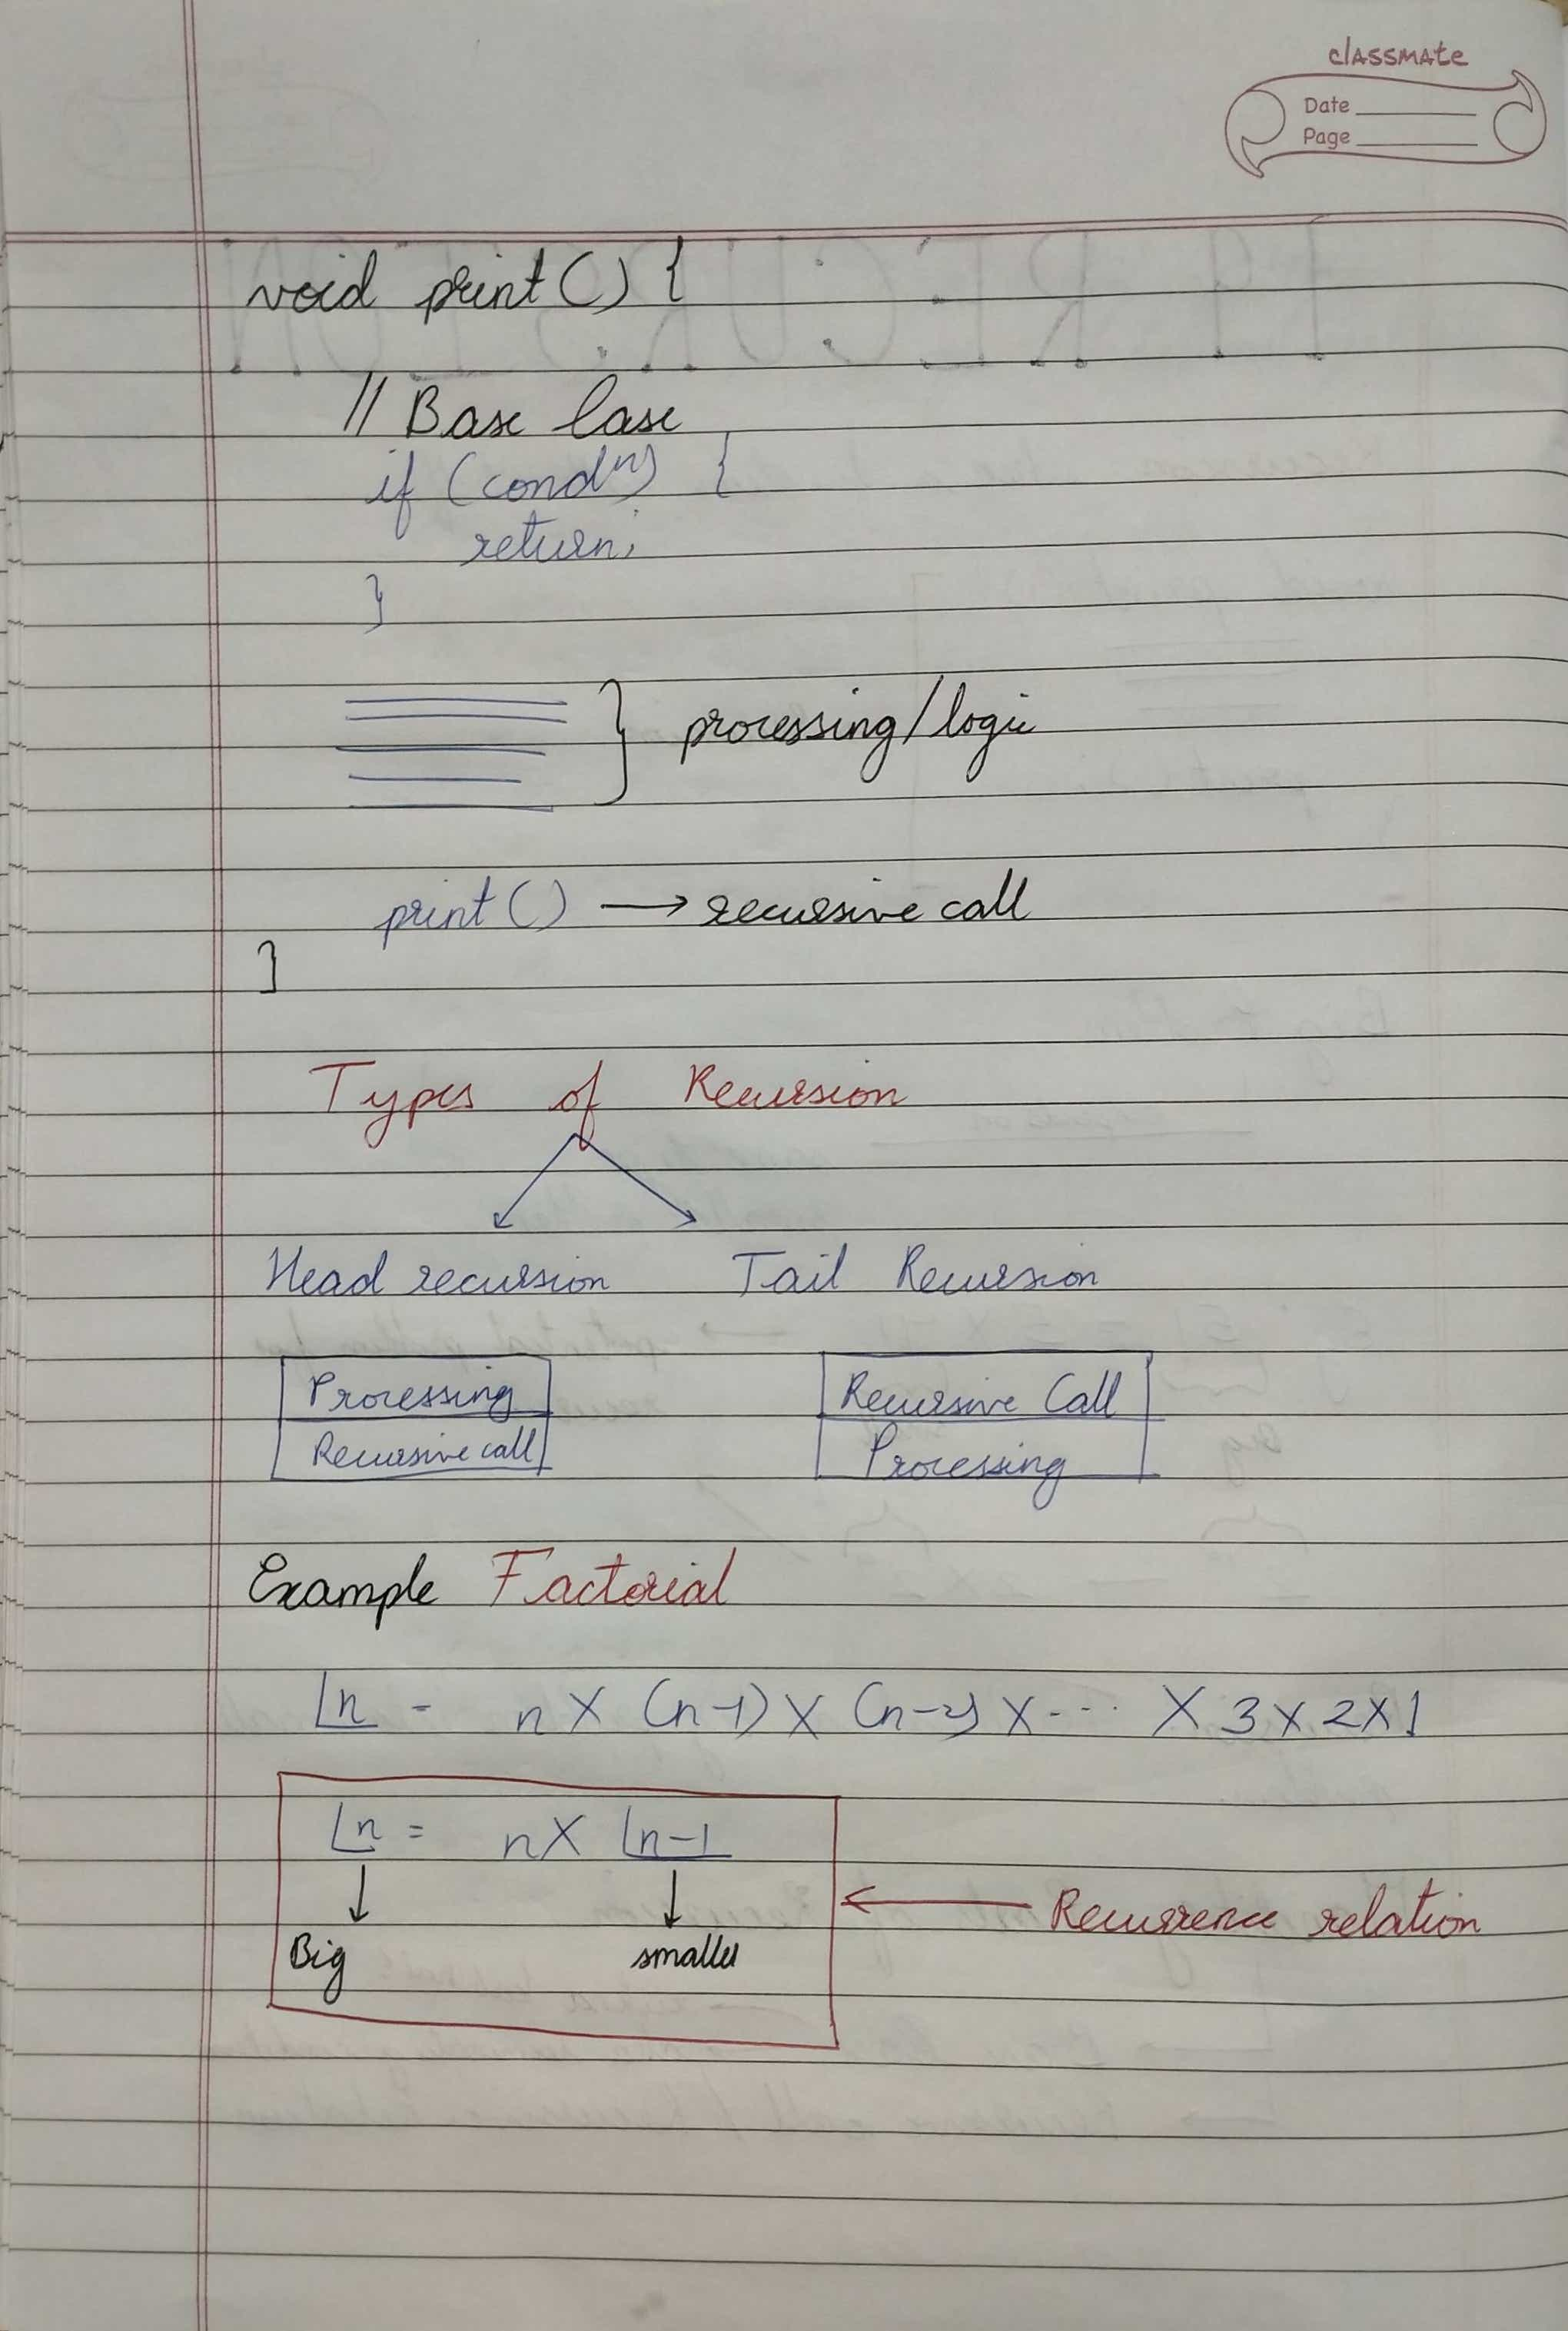 classmate
Date
Page
void print() {
// Base Case
if (condⁿ) {
return;
}
} processing/logic
print() → recursive call
}
Types of Recursion
Head recursion Tail Recursion
Processing Recursive Call
Recursive call Processing
Example Factorial
⌊n = n X (n-1) X (n-2) X --- X 3 X 2 X 1
⌊n = n X ⌊n-1
← Recurrence relation
↓ ↓
Big smaller